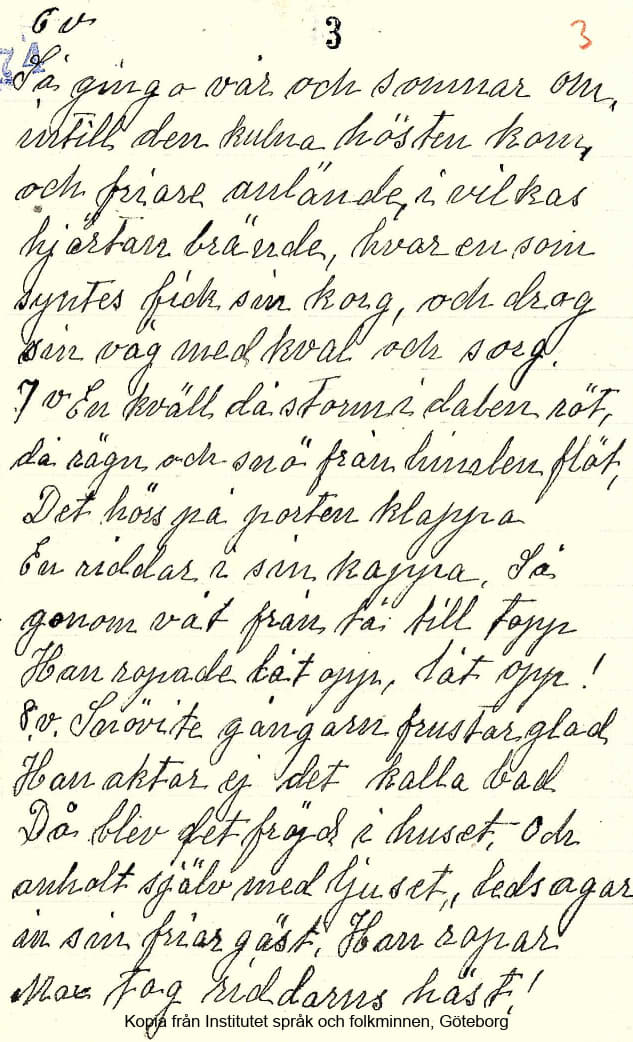 6 v
3
3
Så gingo vår och sommar om,
intill den kulna hösten kom,
och friare anlände, i vilkas
hjärtan brände, hvar en som
syntes fick sin korg, och drog
sin väg med kval och sorg.
7 v En kväll då storm i dalen röt,
då rägn och snö från himlen flöt,
Det hörs på porten klappa
En riddar i sin kappa, Så
genom våt från tå till topp
Han ropade låt opp, låt opp!
8 v. Snövite gångarn frustar glad
Han aktar ej det kalla bad
Då blev det fröjd i huset, Och
anholt själv med ljuset, ledsagar
in sin friar gäst, Han ropar
Max tag riddarns häst,!
Kopia från Institutet språk och folkminnen, Göteborg